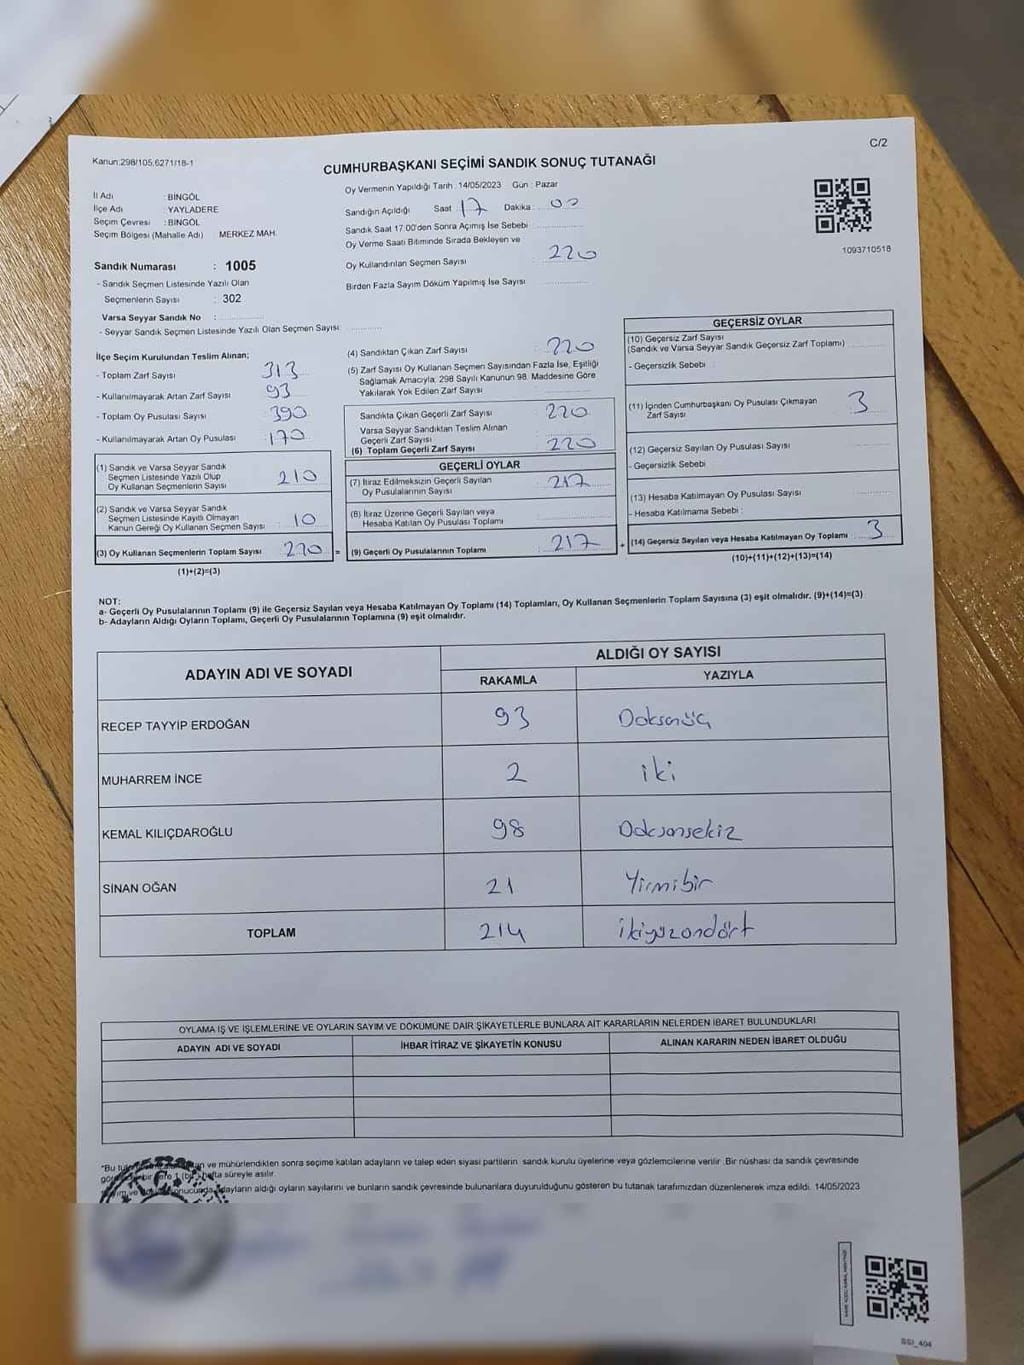 Kanun:298/105,6271/18-1
C/2
CUMHURBAŞKANI SEÇİMİ SANDIK SONUÇ TUTANAĞI
İl Adı : BİNGÖL
İlçe Adı : YAYLADERE
Seçim Çevresi : BİNGÖL
Seçim Bölgesi (Mahalle Adı) MERKEZ MAH.
Sandık Numarası : 1005
- Sandık Seçmen Listesinde Yazılı Olan
Seçmenlerin Sayısı : 302
Varsa Seyyar Sandık No :
- Seyyar Sandık Seçmen Listesinde Yazılı Olan Seçmen Sayısı:
Oy Vermenin Yapıldığı Tarih :14/05/2023 Gün : Pazar
Sandığın Açıldığı Saat 17 Dakika : 00
Sandık Saat 17:00'den Sonra Açımış İse Sebebi :
Oy Verme Saati Bitiminde Sırada Bekleyen ve
Oy Kullandırılan Seçmen Sayısı : 220
Birden Fazla Sayım Döküm Yapılmış İse Sayısı :
1093710518
İlçe Seçim Kurulundan Teslim Alınan;
- Toplam Zarf Sayısı : 313
- Kullanılmayarak Artan Zarf Sayısı : 93
- Toplam Oy Pusulası Sayısı : 390
- Kullanılmayarak Artan Oy Pusulası : 170
(1) Sandık ve Varsa Seyyar Sandık
Seçmen Listesinde Yazılı Olup
Oy Kullanan Seçmenlerin Sayısı : 210
(2) Sandık ve Varsa Seyyar Sandık
Seçmen Listesinde Kayıtlı Olmayan
Kanun Gereği Oy Kullanan Seçmen Sayısı : 10
(3) Oy Kullanan Seçmenlerin Toplam Sayısı : 220 =
(1)+(2)=(3)
(4) Sandıktan Çıkan Zarf Sayısı : 220
(5) Zarf Sayısı Oy Kullanan Seçmen Sayısından Fazla İse, Eşitliği
Sağlamak Amacıyla, 298 Sayılı Kanunun 98. Maddesine Göre
Yakılarak Yok Edilen Zarf Sayısı :
Sandıkta Çıkan Geçerli Zarf Sayısı : 220
Varsa Seyyar Sandıktan Teslim Alınan
Geçerli Zarf Sayısı :
(6) Toplam Geçerli Zarf Sayısı : 220
GEÇERLİ OYLAR
(7) İtiraz Edilmeksizin Geçerli Sayılan
Oy Pusulalarının Sayısı : 217
(8) İtiraz Üzerine Geçerli Sayılan veya
Hesaba Katılan Oy Pusulası Toplamı :
(9) Geçerli Oy Pusulalarının Toplamı : 217 +
GEÇERSİZ OYLAR
(10) Geçersiz Zarf Sayısı
(Sandık ve Varsa Seyyar Sandık Geçersiz Zarf Toplamı) :
- Geçersizlik Sebebi :
(11) İçinden Cumhurbaşkanı Oy Pusulası Çıkmayan
Zarf Sayısı : 3
(12) Geçersiz Sayılan Oy Pusulası Sayısı :
- Geçersizlik Sebebi :
(13) Hesaba Katılmayan Oy Pusulası Sayısı :
- Hesaba Katılmama Sebebi :
(14) Geçersiz Sayılan veya Hesaba Katılmayan Oy Toplamı : 3
(10)+(11)+(12)+(13)=(14)
NOT:
a- Geçerli Oy Pusulalarının Toplamı (9) ile Geçersiz Sayılan veya Hesaba Katılmayan Oy Toplamı (14) Toplamları, Oy Kullanan Seçmenlerin Toplam Sayısına (3) eşit olmalıdır. (9)+(14)=(3)
b- Adayların Aldığı Oyların Toplamı, Geçerli Oy Pusulalarının Toplamına (9) eşit olmalıdır.
ADAYIN ADI VE SOYADI
ALDIĞI OY SAYISI
RAKAMLA YAZIYLA
RECEP TAYYİP ERDOĞAN 93 Doksanüç
MUHARREM İNCE 2 iki
KEMAL KILIÇDAROĞLU 98 Doksansekiz
SİNAN OĞAN 21 Yirmibir
TOPLAM 214 ikiyüzondört
OYLAMA İŞ VE İŞLEMLERİNE VE OYLARIN SAYIM VE DÖKÜMÜNE DAİR ŞİKAYETLERLE BUNLARA AİT KARARLARIN NELERDEN İBARET BULUNDUKLARI
ADAYIN ADI VE SOYADI İHBAR İTİRAZ VE ŞİKAYETİN KONUSU ALINAN KARARIN NEDEN İBARET OLDUĞU
*Bu ve mühürlendikten sonra seçime katılan adayların ve talep eden siyasi partilerin sandık kurulu üyelerine veya gözlemcilerine verilir. Bir nüshası da sandık çevresinde
hafta süreyle asılır.
adayların aldığı oyların sayılarını ve bunların sandık çevresinde bulunanlara duyurulduğunu gösteren bu tutanak tarafımızdan düzenlenerek imza edildi. 14/05/2023